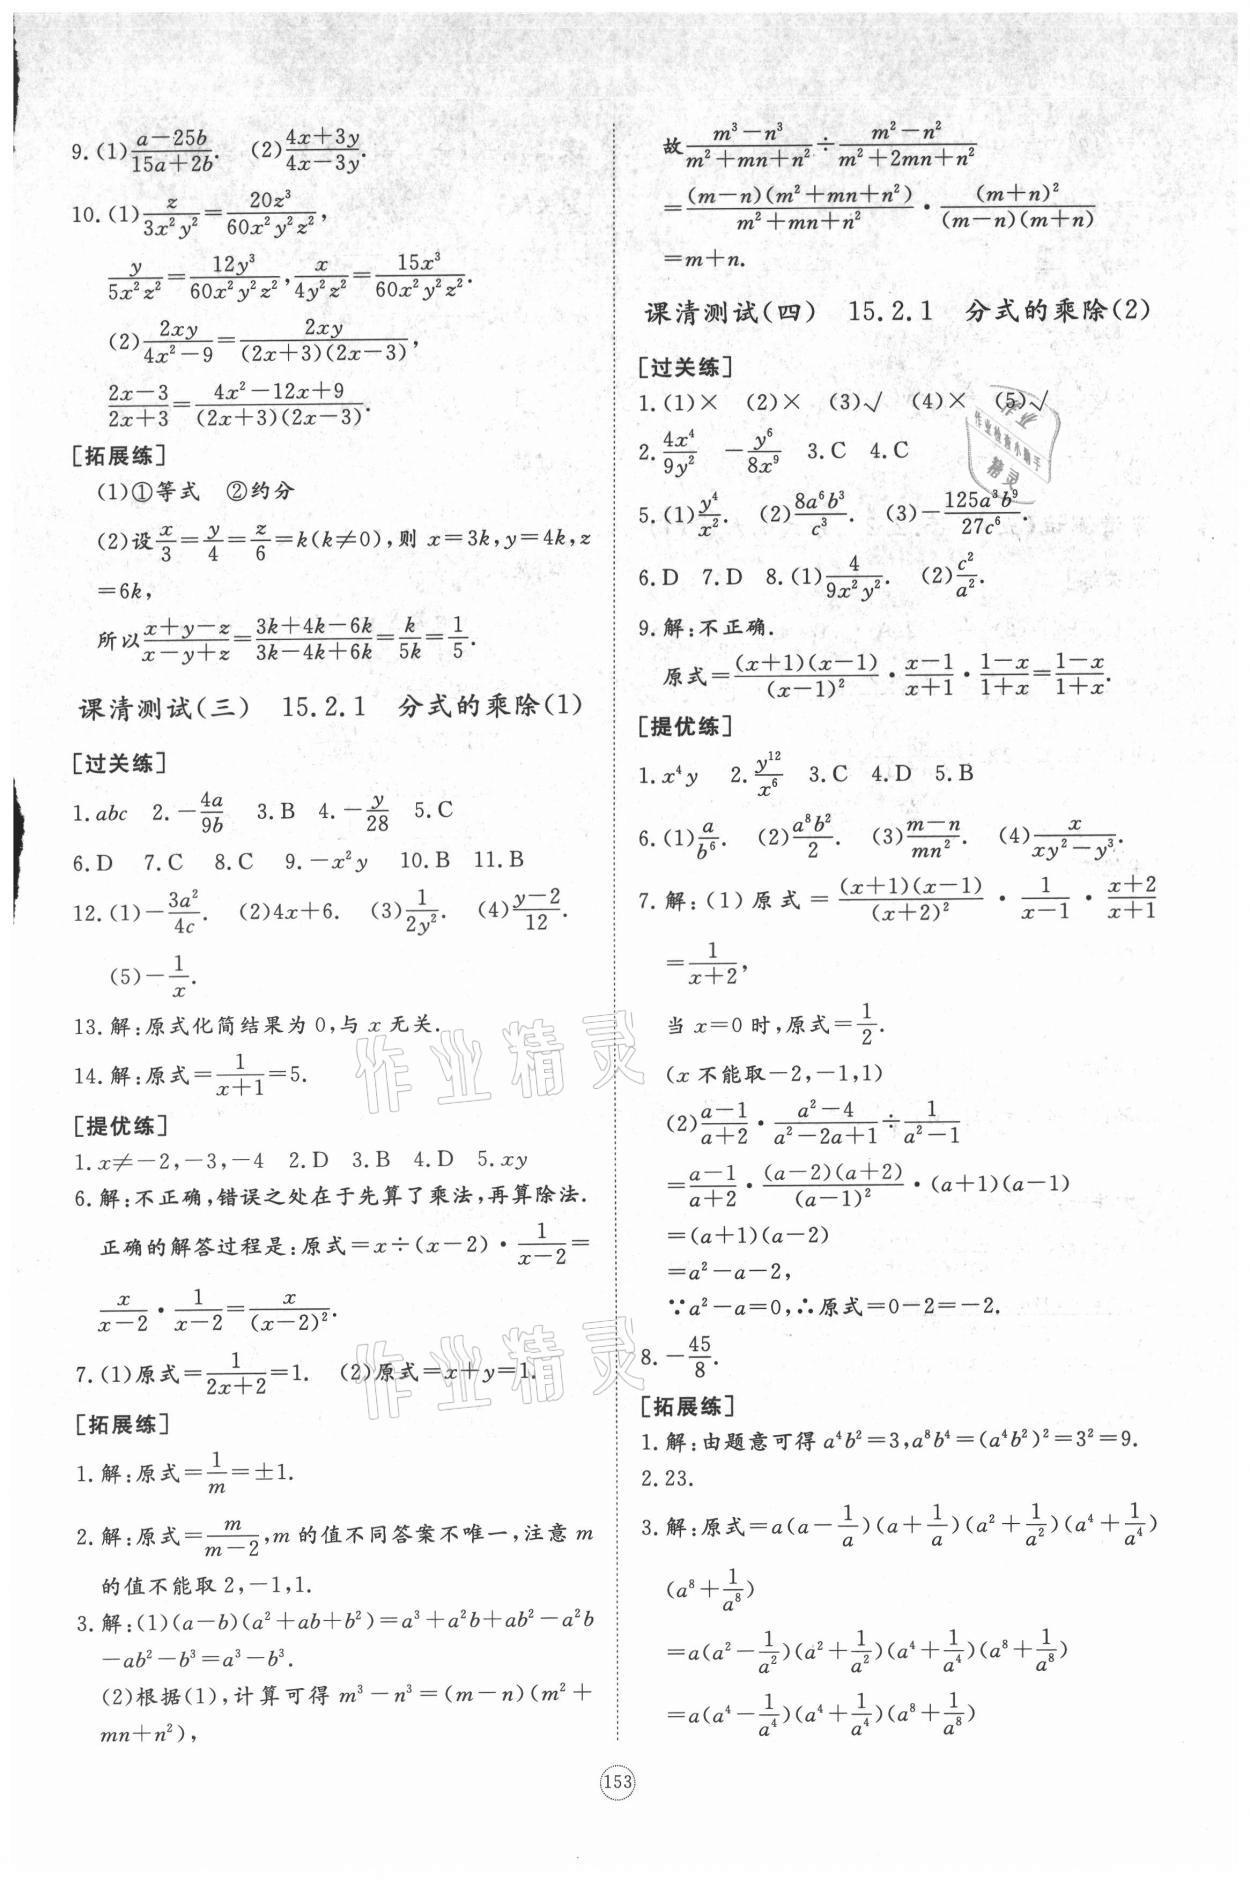 9.(1)$\frac{a-25b}{15a+2b}$. (2)$\frac{4x+3y}{4x-3y}$.
10.(1)$\frac{z}{3x^2y^2}=\frac{20z^3}{60x^2y^2z^2}$,
$\frac{y}{5x^2z^2}=\frac{12y^3}{60x^2y^2z^2}$,$\frac{x}{4y^2z^2}=\frac{15x^3}{60x^2y^2z^2}$.
(2)$\frac{2xy}{4x^2-9}=\frac{2xy}{(2x+3)(2x-3)}$,
$\frac{2x-3}{2x+3}=\frac{4x^2-12x+9}{(2x+3)(2x-3)}$.
[拓展练]
(1)①等式 ②约分
(2)设$\frac{x}{3}=\frac{y}{4}=\frac{z}{6}=k(k≠0)$,则 x=3k,y=4k,z
=6k,
所以$\frac{x+y-z}{x-y+z}=\frac{3k+4k-6k}{3k-4k+6k}=\frac{k}{5k}=\frac{1}{5}$.
课清测试(三) 15.2.1 分式的乘除(1)
[过关练]
1.abc 2.$-\frac{4a}{9b}$ 3.B 4.$-\frac{y}{28}$ 5.C
6.D 7.C 8.C 9.$-x^2y$ 10.B 11.B
12.(1)$-\frac{3a^2}{4c}$. (2)4x+6. (3)$\frac{1}{2y^2}$. (4)$\frac{y-2}{12}$.
(5)$-\frac{1}{x}$.
13.解:原式化简结果为 0,与 x 无关.
14.解:原式=$\frac{1}{x+1}$=5.
[提优练]
1.x≠-2,-3,-4 2.D 3.B 4.D 5.xy
6.解:不正确,错误之处在于先算了乘法,再算除法.
正确的解答过程是:原式=x÷(x-2)·$\frac{1}{x-2}$=
$\frac{x}{x-2}·\frac{1}{x-2}=\frac{x}{(x-2)^2}$.
7.(1)原式=$\frac{1}{2x+2}$=1. (2)原式=x+y=1.
[拓展练]
1.解:原式=$\frac{1}{m}$=±1.
2.解:原式=$\frac{m}{m-2}$,m 的值不同答案不唯一,注意 m
的值不能取 2,-1,1.
3.解:(1)$(a-b)(a^2+ab+b^2)=a^3+a^2b+ab^2-a^2b$
$-ab^2-b^3=a^3-b^3$.
(2)根据(1),计算可得 $m^3-n^3=(m-n)(m^2+$
$mn+n^2)$,
故$\frac{m^3-n^3}{m^2+mn+n^2}÷\frac{m^2-n^2}{m^2+2mn+n^2}$
$=\frac{(m-n)(m^2+mn+n^2)}{m^2+mn+n^2}·\frac{(m+n)^2}{(m-n)(m+n)}$
=m+n.
课清测试(四) 15.2.1 分式的乘除(2)
[过关练]
1.(1)× (2)× (3)√ (4)× (5)√
2.$\frac{4x^4}{9y^2}$ $-\frac{y^6}{8x^9}$ 3.C 4.C
5.(1)$\frac{y^4}{x^2}$. (2)$\frac{8a^6b^3}{c^3}$. (3)$-\frac{125a^3b^9}{27c^6}$.
6.D 7.D 8.(1)$\frac{4}{9x^2y^2}$. (2)$\frac{c^2}{a^2}$.
9.解:不正确.
原式=$\frac{(x+1)(x-1)}{(x-1)^2}·\frac{x-1}{x+1}·\frac{1-x}{1+x}=\frac{1-x}{1+x}$.
[提优练]
1.$x^4y$ 2.$\frac{y^{12}}{x^6}$ 3.C 4.D 5.B
6.(1)$\frac{a}{b^6}$. (2)$\frac{a^8b^2}{2}$. (3)$\frac{m-n}{mn^2}$. (4)$\frac{x}{xy^2-y^3}$.
7.解:(1)原式=$\frac{(x+1)(x-1)}{(x+2)^2}·\frac{1}{x-1}·\frac{x+2}{x+1}$
$=\frac{1}{x+2}$,
当 x=0 时,原式=$\frac{1}{2}$.
(x 不能取-2,-1,1)
(2)$\frac{a-1}{a+2}·\frac{a^2-4}{a^2-2a+1}÷\frac{1}{a^2-1}$
$=\frac{a-1}{a+2}·\frac{(a-2)(a+2)}{(a-1)^2}·(a+1)(a-1)$
=(a+1)(a-2)
$=a^2-a-2$,
∵$a^2-a=0$,∴原式=0-2=-2.
8.$-\frac{45}{8}$.
[拓展练]
1.解:由题意可得 $a^4b^2=3$,$a^8b^4=(a^4b^2)^2=3^2=9$.
2.23.
3.解:原式=$a(a-\frac{1}{a})(a+\frac{1}{a})(a^2+\frac{1}{a^2})(a^4+\frac{1}{a^4})$
$(a^8+\frac{1}{a^8})$
$=a(a^2-\frac{1}{a^2})(a^2+\frac{1}{a^2})(a^4+\frac{1}{a^4})(a^8+\frac{1}{a^8})$
$=a(a^4-\frac{1}{a^4})(a^4+\frac{1}{a^4})(a^8+\frac{1}{a^8})$
153
作业
作业检查小助手
精灵
作业精灵
作业精灵